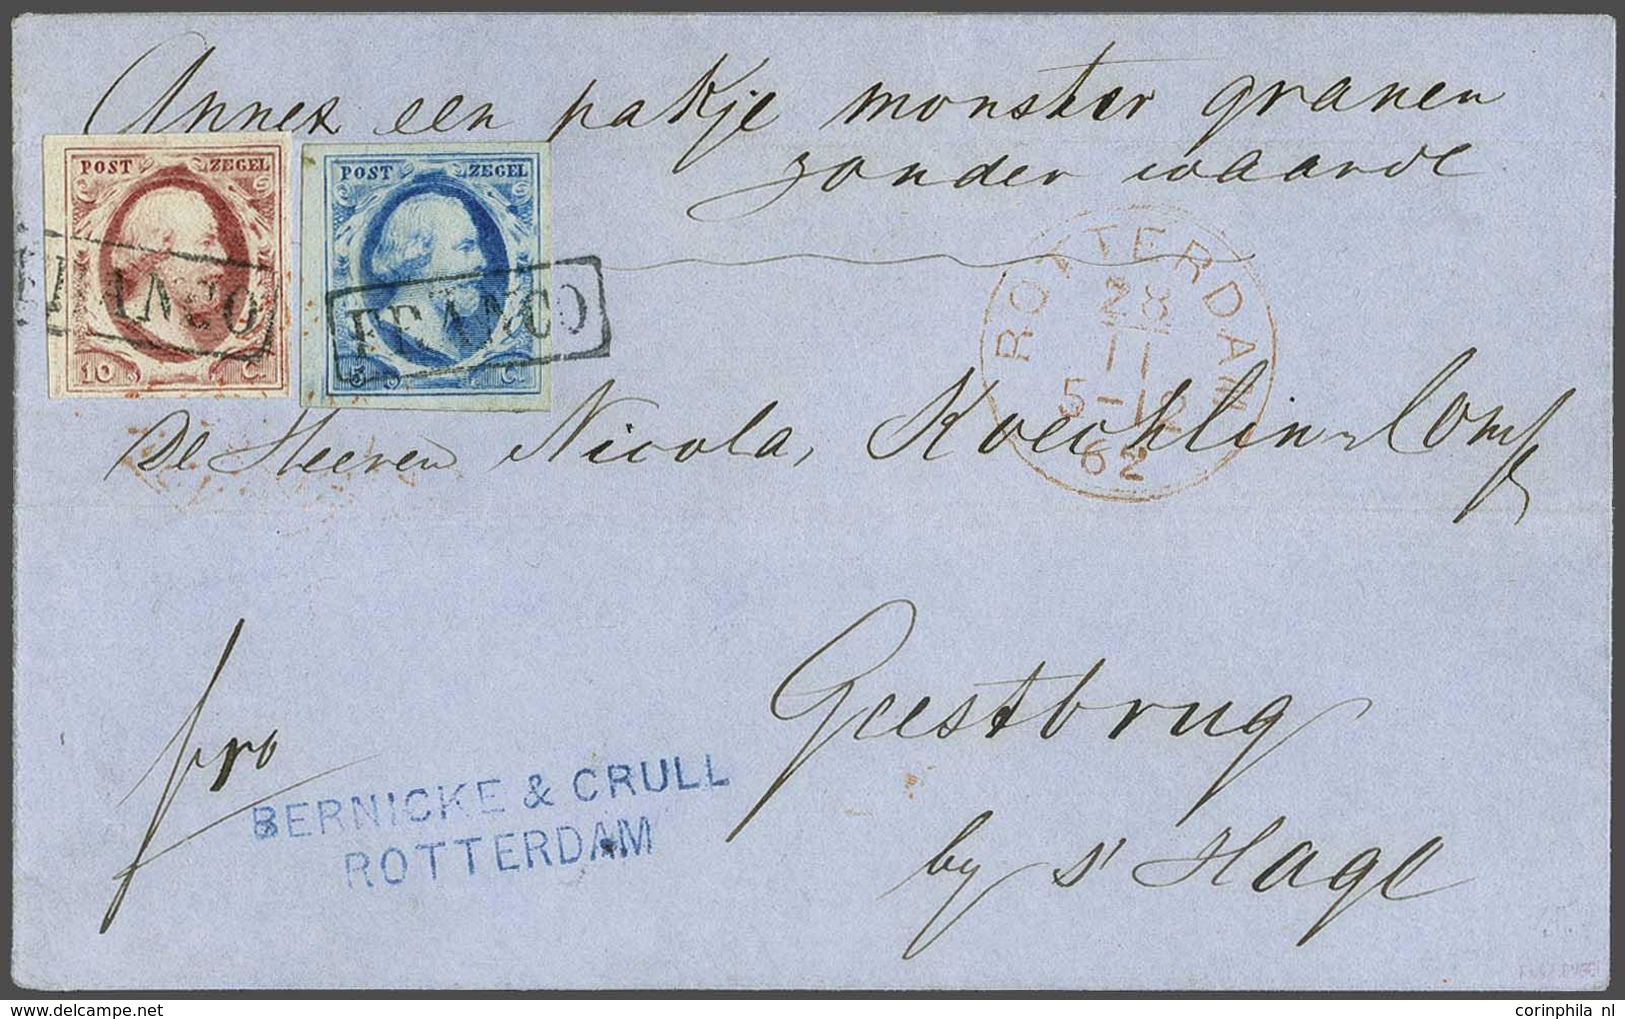 Annex een pakje monster granen
zonder waarde
POST ZEGEL
POST ZEGEL
FRANCO
FRANCO
10 Ct.
5 Ct.
ROTTERDAM
28
11
5-12
62
De Heeren Nicola, Koechlin & Comp
Geestbrug
by s' Hage
pro
BERNICKE & CRULL
ROTTERDAM
corinphila nl